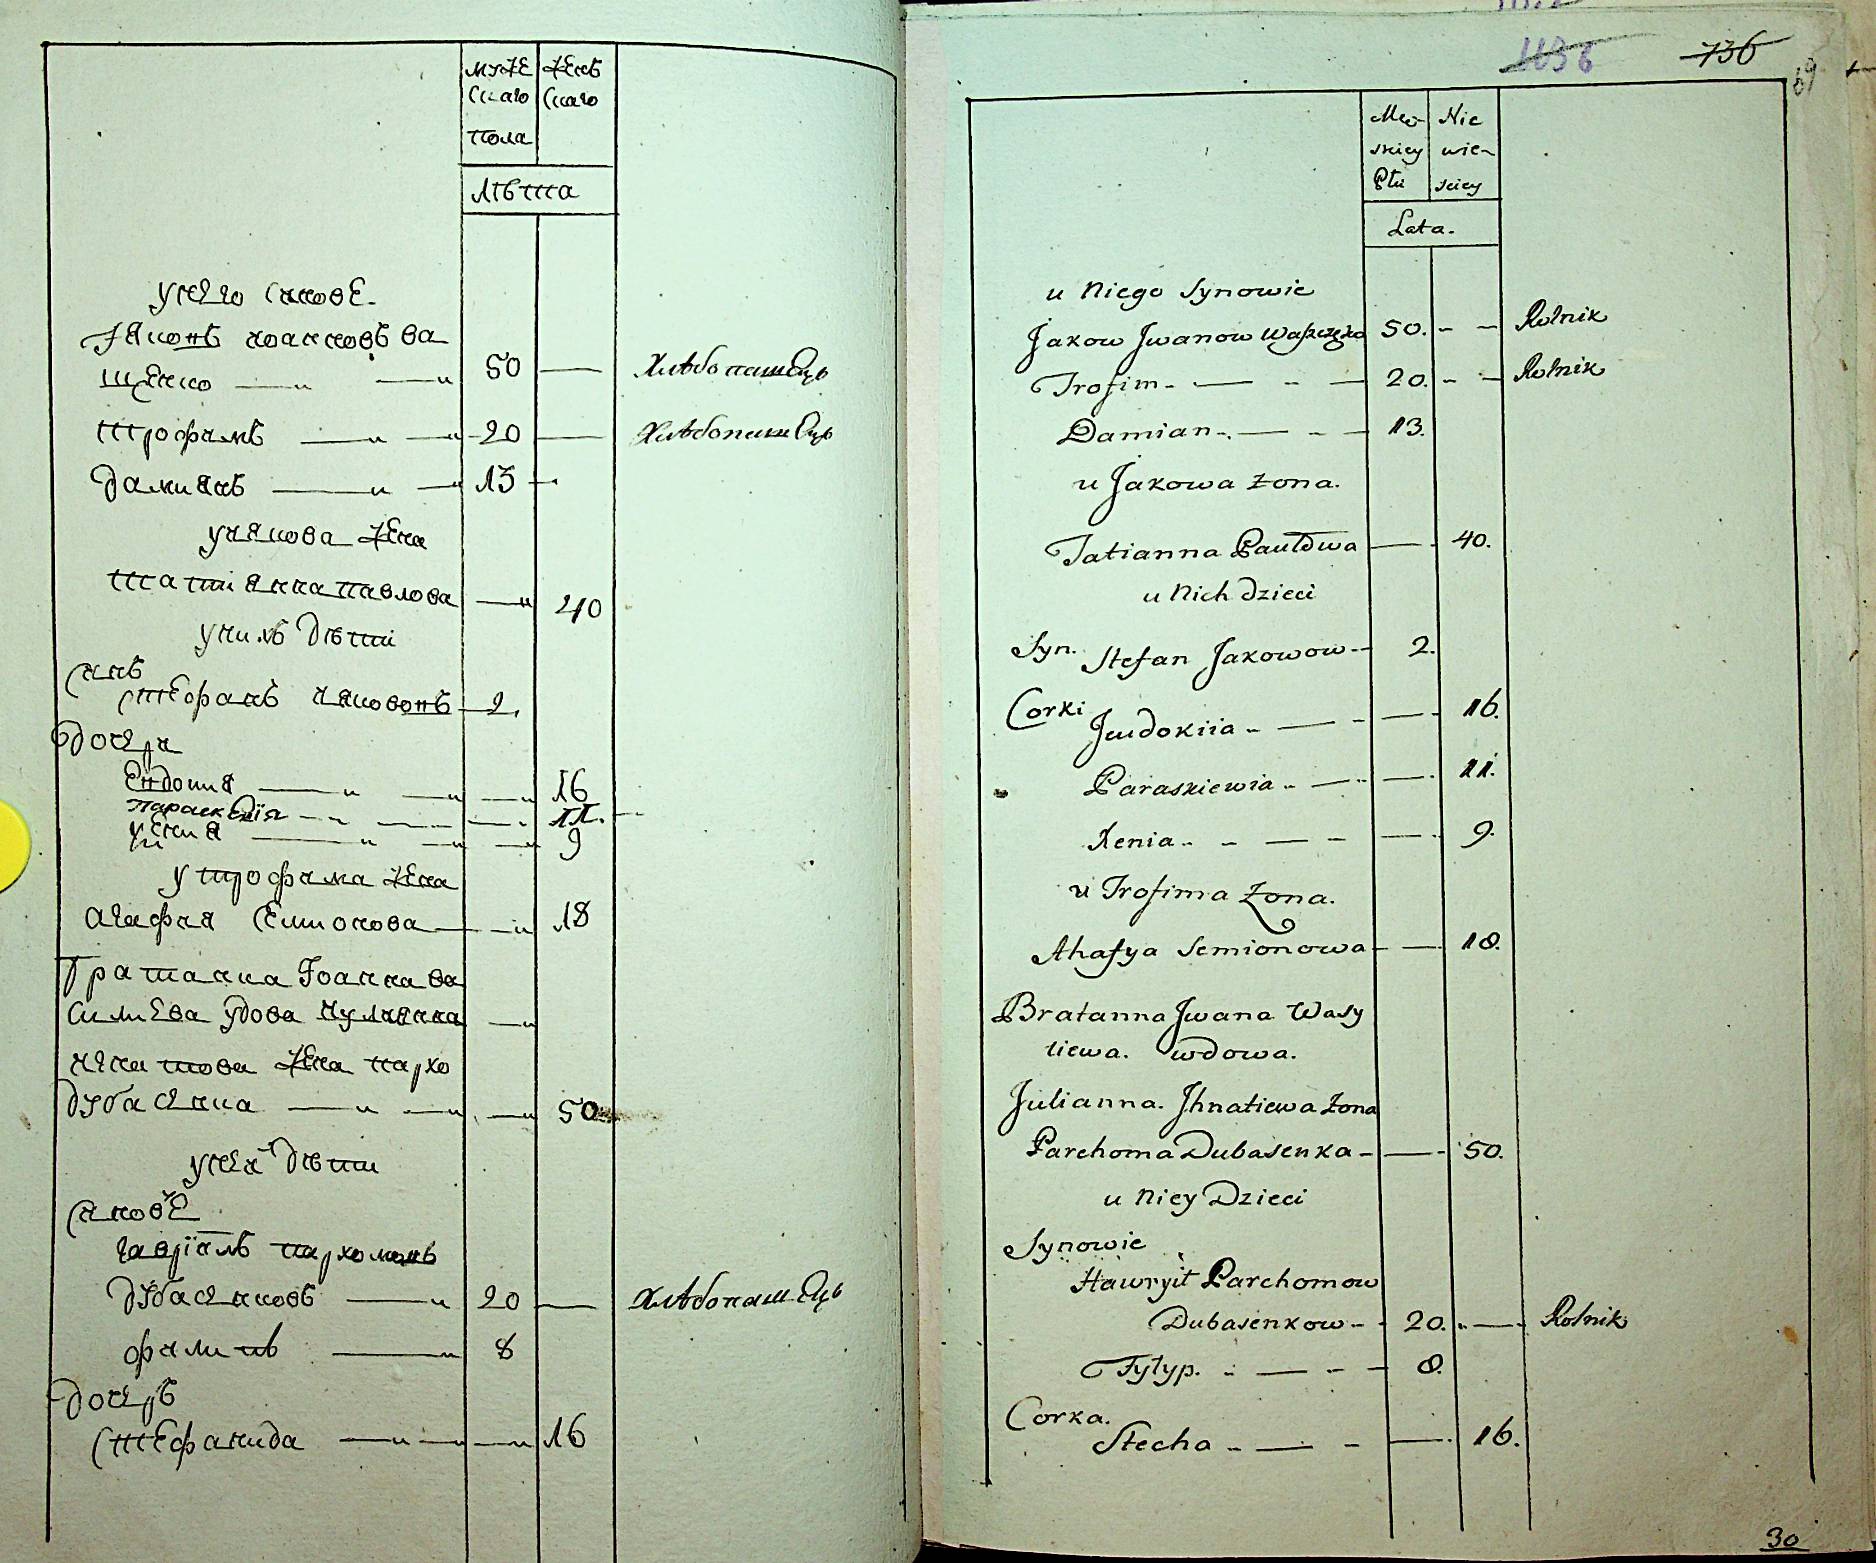 муже женъ
скаго скаго
пола
лѣта
у него синове
Іяковъ иоанновъ ва
щенко 50 Хлѣбопашецъ
трофимъ 20 Хлѣбопашецъ
Дамиянъ 13
у иякова жена
татиянна павлова 40
у нихъ дѣти
Синъ
стефанъ иякововъ 2
Дочери
Евдокия 16
параскевїя 11.
ксения 9
у трофима жена
агафия семионова 18
Братанна Іоанна ва
силиева удова иулиянна
игнатова жена пархо
дубасенка 50
у неи дѣти
синовѣ
гаврїилъ пархомовъ
дубасенковъ 20 Хлѣбопашецъ
филипъ 8
дочеръ
стефанида 16
1136 736
69
Męz- Nie
skiey wie-
Płci sciey
Lata.
u Niego Synowie
Jakow Jwanow Waszczęko 50. Rolnik
Trofim 20. Rolnik
Damian 13.
u Jakowa żona.
Tatianna Pawłowa 40.
u Nich dzieci
Syn. Stefan Jakowow 2.
Corki Jewdokiia 16.
Paraskiewia 11.
Xenia 9.
u Trofima Żona.
Ahafya Semionowa 18.
Bratanna Jwana Wasy
liewa. wdowa.
Julianna. Jhnatiewa żona
Parchoma Dubasenka 50.
u Niey Dzieci
Synowie
Hawryił Parchomow
Dubasenkow 20. Rolnik
Fylyp. 8.
Corka.
Stecha 16.
30